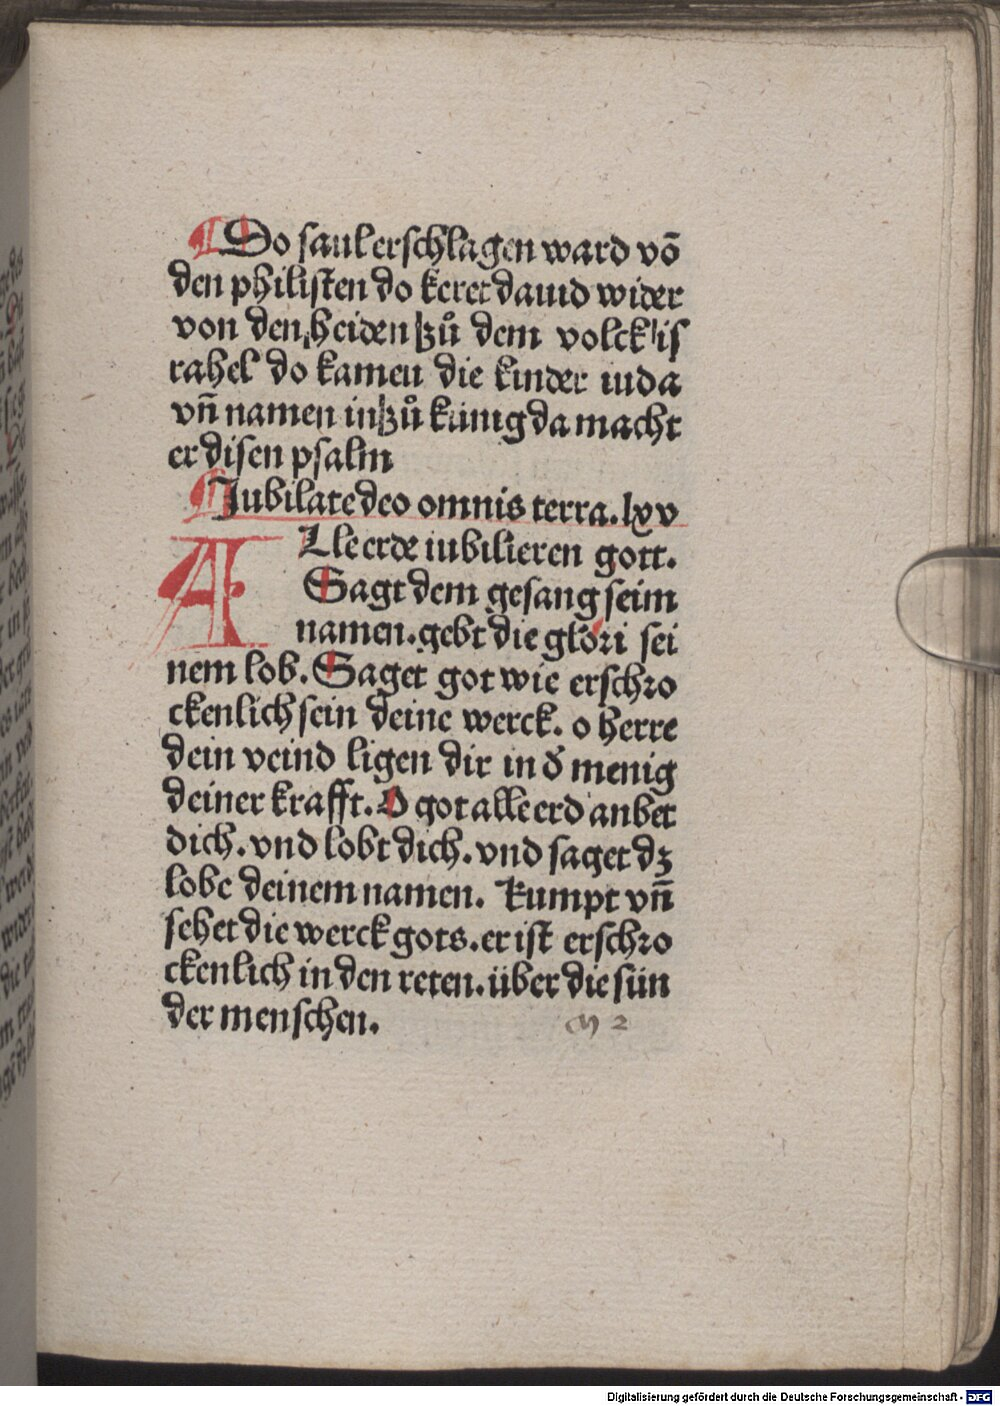 Do saul erschlagen ward vō
den philisten do keret dauid wider
von den heiden zů dem volck is
rahel do kamen die kinder iuda
vñ namen in zů künig da macht
er disen psalm
Jubilate deo omnis terra. lxv
ALle erde iubilieren gott.
Sagt dem gesang seim
namen. gebt die glori sei
nem lob. Saget got wie erschro
ckenlich sein deine werck. o herre
dein veind ligen dir in d̕ menig
deiner krafft. O got alle erd anbet
dich. vnd lobt dich. vnd saget dz
lobe deinem namen. Kumpt vñ
sehet die werck gots. er ist erschro
ckenlich in den reten. über die sün
der menschen.
m 2
Digitalisierung gefördert durch die Deutsche Forschungsgemeinschaft - DFG